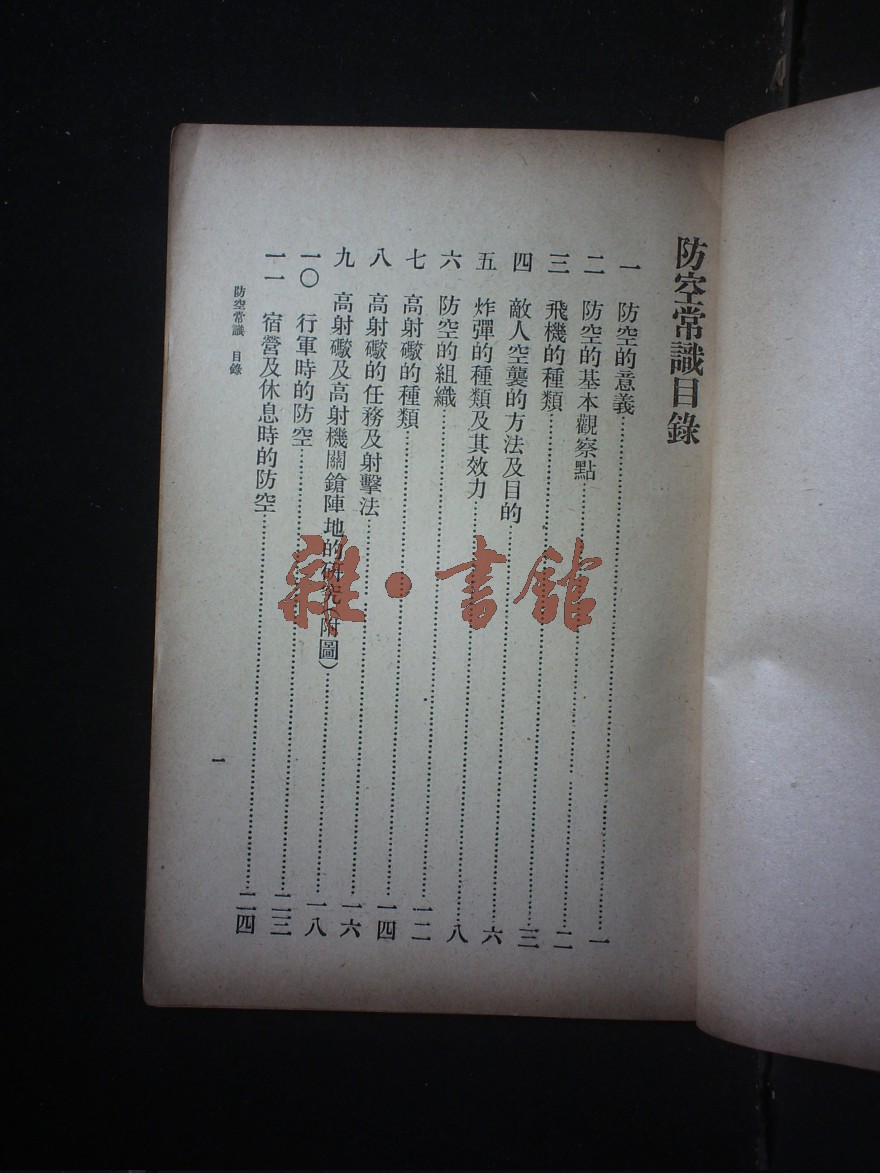 防空常識目錄
一 防空的意義……一
二 防空的基本觀察點……二
三 飛機的種類……三
四 敵人空襲的方法及目的……六
五 炸彈的種類及其效力……八
六 防空的組織……一二
七 高射礮的種類……一四
八 高射礮的任務及射擊法……一六
九 高射礮及高射機關鎗陣地的研究(附圖)……一八
一〇 行軍時的防空……二三
一一 宿營及休息時的防空……二四
防空常識 目錄
一
雜·書館